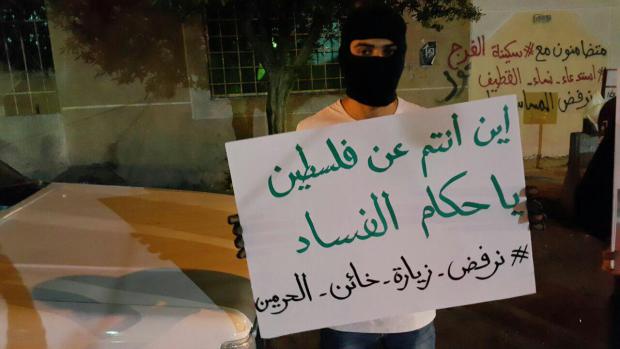 اين أنتم عن فلسطين
يا حكام الفساد
#نرفض-زيارة-خائن-الحرمين
متضامنون مع #سكينة الفرج
#استدعاء-نساء-القطيف
نرفض